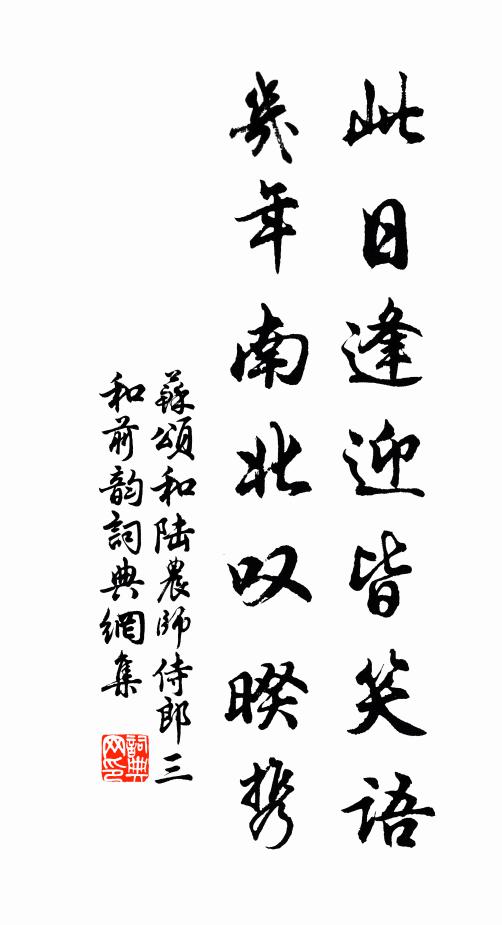 此日逢迎皆笑語
幾年南北叹暌携
蘇頌和陆農師侍郎三
和前韵詞典網集
詞典
网印